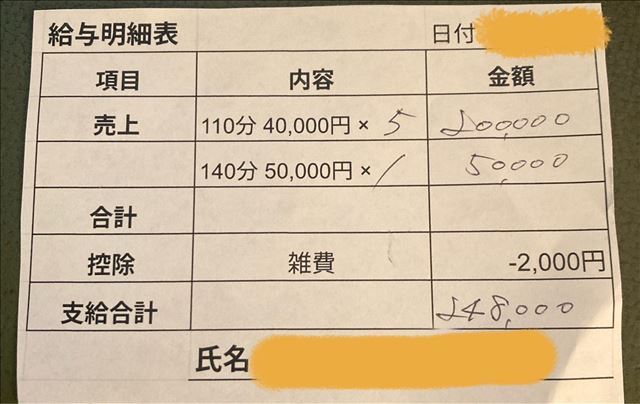 給与明細表 日付
項目 内容 金額
売上 110分 40,000円 × 5 200,000
140分 50,000円 × 1 50,000
合計
控除 雑費 -2,000円
支給合計 248,000
氏名